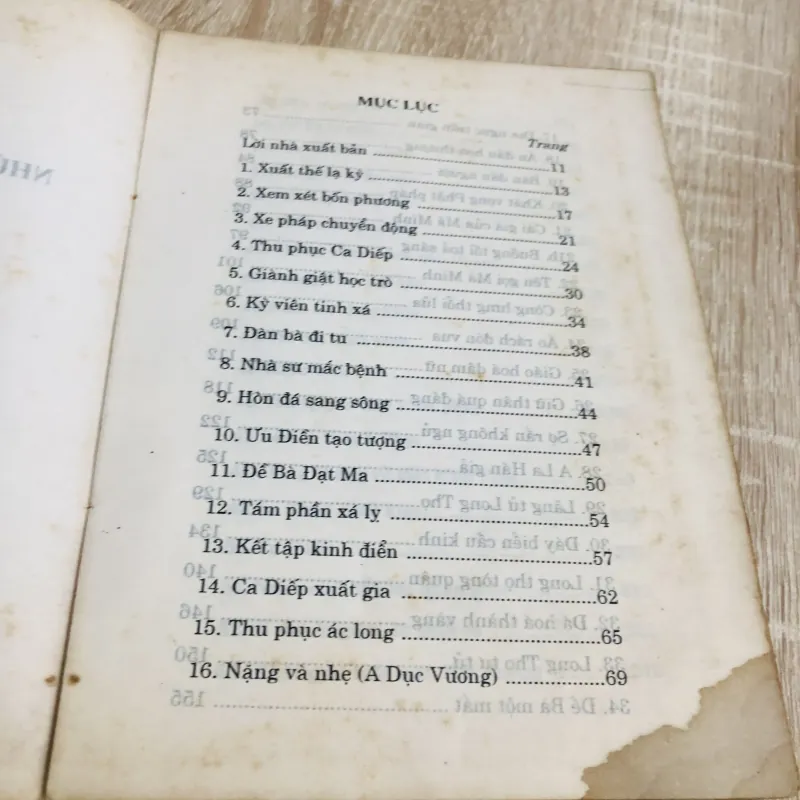 MỤC LỤC
Trang
Lời nhà xuất bản ........ 11
1. Xuất thế lạ kỳ ........ 13
2. Xem xét bốn phương ........ 17
3. Xe pháp chuyển động ........ 21
4. Thu phục Ca Diếp ........ 24
5. Giành giật học trò ........ 30
6. Kỳ viên tinh xá ........ 34
7. Đàn bà đi tu ........ 38
8. Nhà sư mắc bệnh ........ 41
9. Hòn đá sang sông ........ 44
10. Ưu Điền tạo tượng ........ 47
11. Đề Bà Đạt Ma ........ 50
12. Tám phần xá lỵ ........ 54
13. Kết tập kinh điển ........ 57
14. Ca Diếp xuất gia ........ 62
15. Thu phục ác long ........ 65
16. Nặng và nhẹ (A Dục Vương) ........ 69